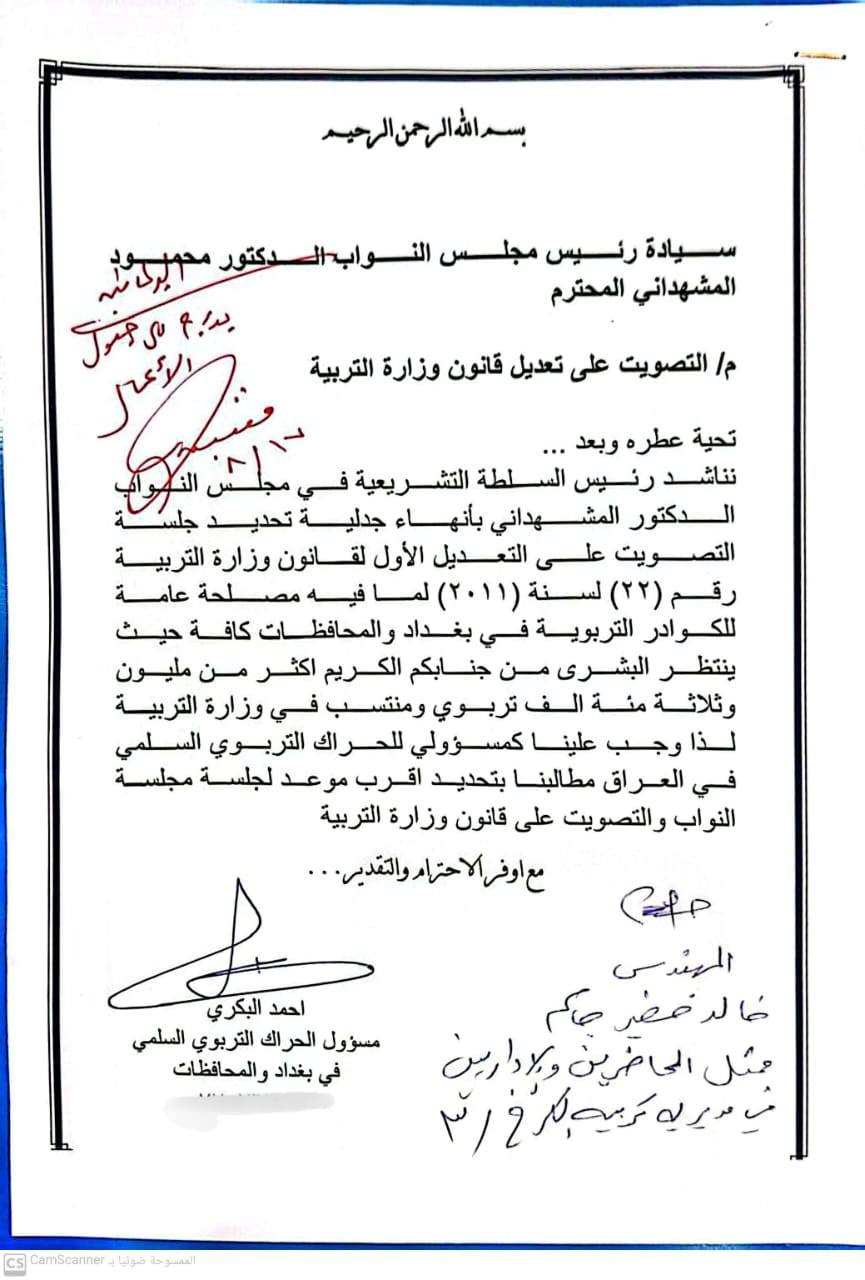 بسم الله الرحمن الرحيم
سيادة رئيس مجلس النواب الدكتور محمود
المشهداني المحترم
البرلمانية
يدرج على جدول
الأعمال
٨/١٧
م/ التصويت على تعديل قانون وزارة التربية
تحية عطره وبعد ...
نناشد رئيس السلطة التشريعية في مجلس النواب
الدكتور المشهداني بأنهاء جدلية تحديد جلسة
التصويت على التعديل الأول لقانون وزارة التربية
رقم (٢٢) لسنة (٢٠١١) لما فيه مصلحة عامة
للكوادر التربوية في بغداد والمحافظات كافة حيث
ينتظر البشرى من جنابكم الكريم اكثر من مليون
وثلاثة مئة الف تربوي ومنتسب في وزارة التربية
لذا وجب علينا كمسؤولي للحراك التربوي السلمي
في العراق مطالبنا بتحديد اقرب موعد لجلسة مجلسة
النواب والتصويت على قانون وزارة التربية
مع اوفر الاحترام والتقدير...
المهندس
خالد خضير جاكم
ممثل المحاضرين والاداريين
في مديرية تربية الكرخ /٣
احمد البكري
مسؤول الحراك التربوي السلمي
في بغداد والمحافظات
CS CamScanner الممسوحة ضوئيا بـ